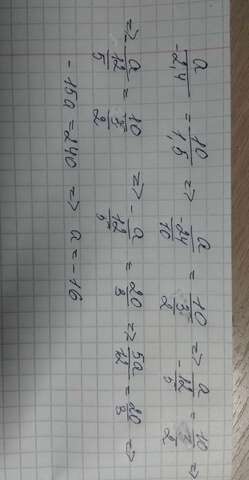 a/-2,4 = 10/1,5 => a/(-24/10) = 10/(3/2) => a/(-12/5) = 10/(3/2) =>
=> a/(12/5) = 10/(3/2) => -a/(12/5) = 20/3 => 5a/12 = 20/3 =>
-15a = 240 => a = -16